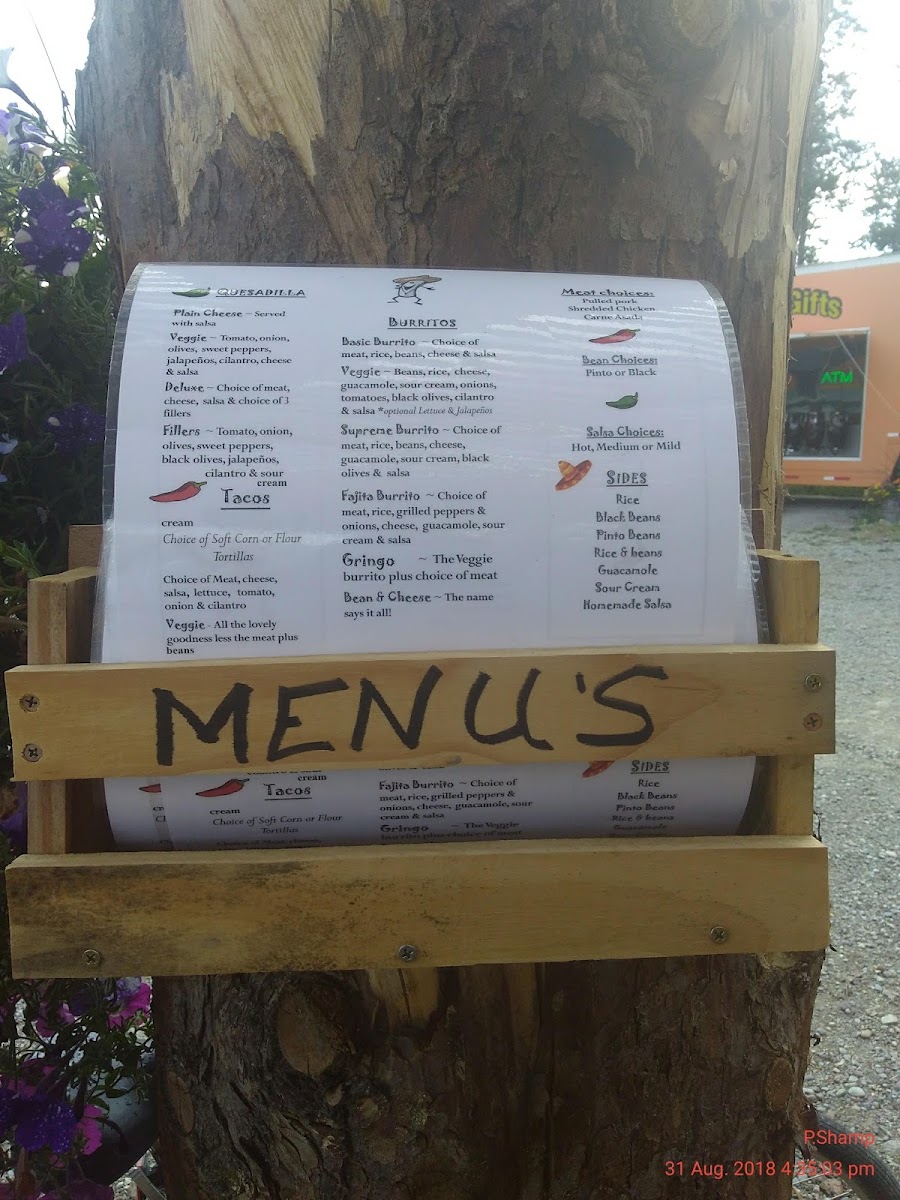 QUESADILLA
Plain Cheese ~ Served
with salsa
Veggie ~ Tomato, onion,
olives, sweet peppers,
jalapeños, cilantro, cheese
& salsa
Deluxe ~ Choice of meat,
cheese, salsa & choice of 3
fillers
Fillers ~ Tomato, onion,
olives, sweet peppers,
black olives, jalapeños,
cilantro & sour
cream
Tacos
cream
Choice of Soft Corn or Flour
Tortillas
Choice of Meat, cheese,
salsa, lettuce, tomato,
onion & cilantro
Veggie - All the lovely
goodness less the meat plus
beans
BURRITOS
Basic Burrito ~ Choice of
meat, rice, beans, cheese & salsa
Veggie ~ Beans, rice, cheese,
guacamole, sour cream, onions,
tomatoes, black olives, cilantro
& salsa *optional Lettuce & Jalapeños
Supreme Burrito ~ Choice of
meat, rice, beans, cheese,
guacamole, sour cream, black
olives & salsa
Fajita Burrito ~ Choice of
meat, rice, grilled peppers &
onions, cheese, guacamole, sour
cream & salsa
Gringo ~ The Veggie
burrito plus choice of meat
Bean & Cheese ~ The name
says it all!
Meat choices:
Pulled pork
Shredded Chicken
Carne Asada
Bean Choices:
Pinto or Black
Salsa Choices:
Hot, Medium or Mild
SIDES
Rice
Black Beans
Pinto Beans
Rice & beans
Guacamole
Sour Cream
Homemade Salsa
Gifts
ATM
MENU'S
cream
Tacos
cream
Choice of Soft Corn or Flour
Tortillas
Choice of Meat, cheese,
Fajita Burrito ~ Choice of
meat, rice, grilled peppers &
onions, cheese, guacamole, sour
cream & salsa
Gringo ~ The Veggie
burrito plus choice of meat
SIDES
Rice
Black Beans
Pinto Beans
Rice & beans
Guacamole
PShamp
31 Aug. 2018 4:35:03 pm